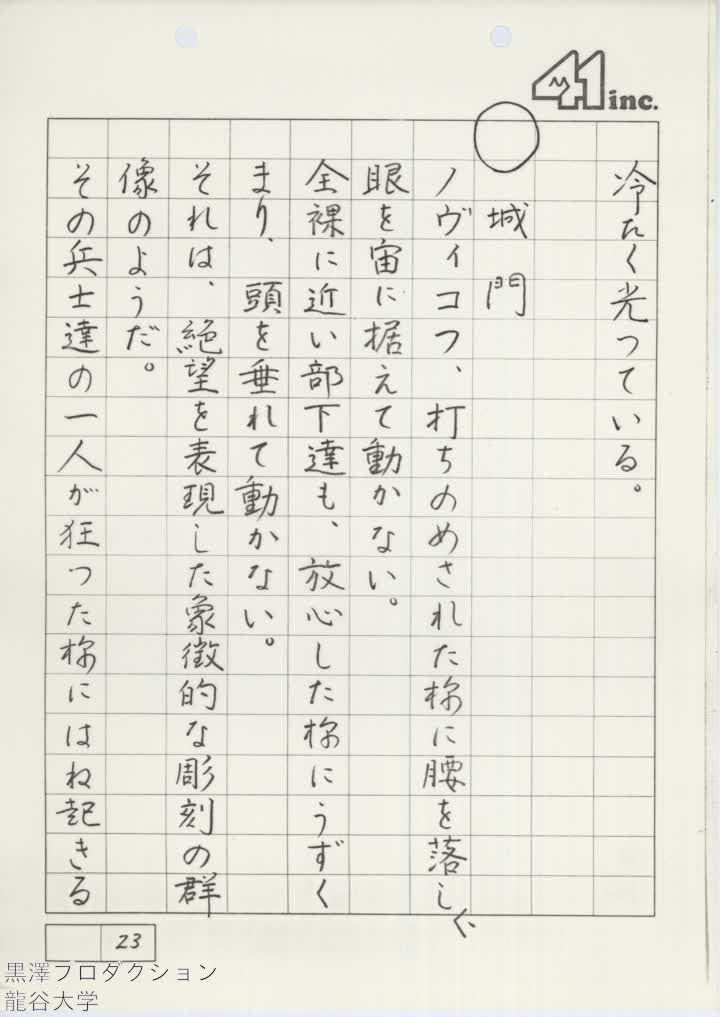 41 inc.
冷たく光っている。
○ 城門
ノヴィコフ、打ちのめされた様に腰を落し、
眼を宙に据えて動かない。
全裸に近い部下達も、放心した様にうずく
まり、頭を垂れて動かない。
それは、絶望を表現した象徴的な彫刻の群
像のようだ。
その兵士達の一人が狂った様にはね起きる
23
黒澤プロダクション
龍谷大学